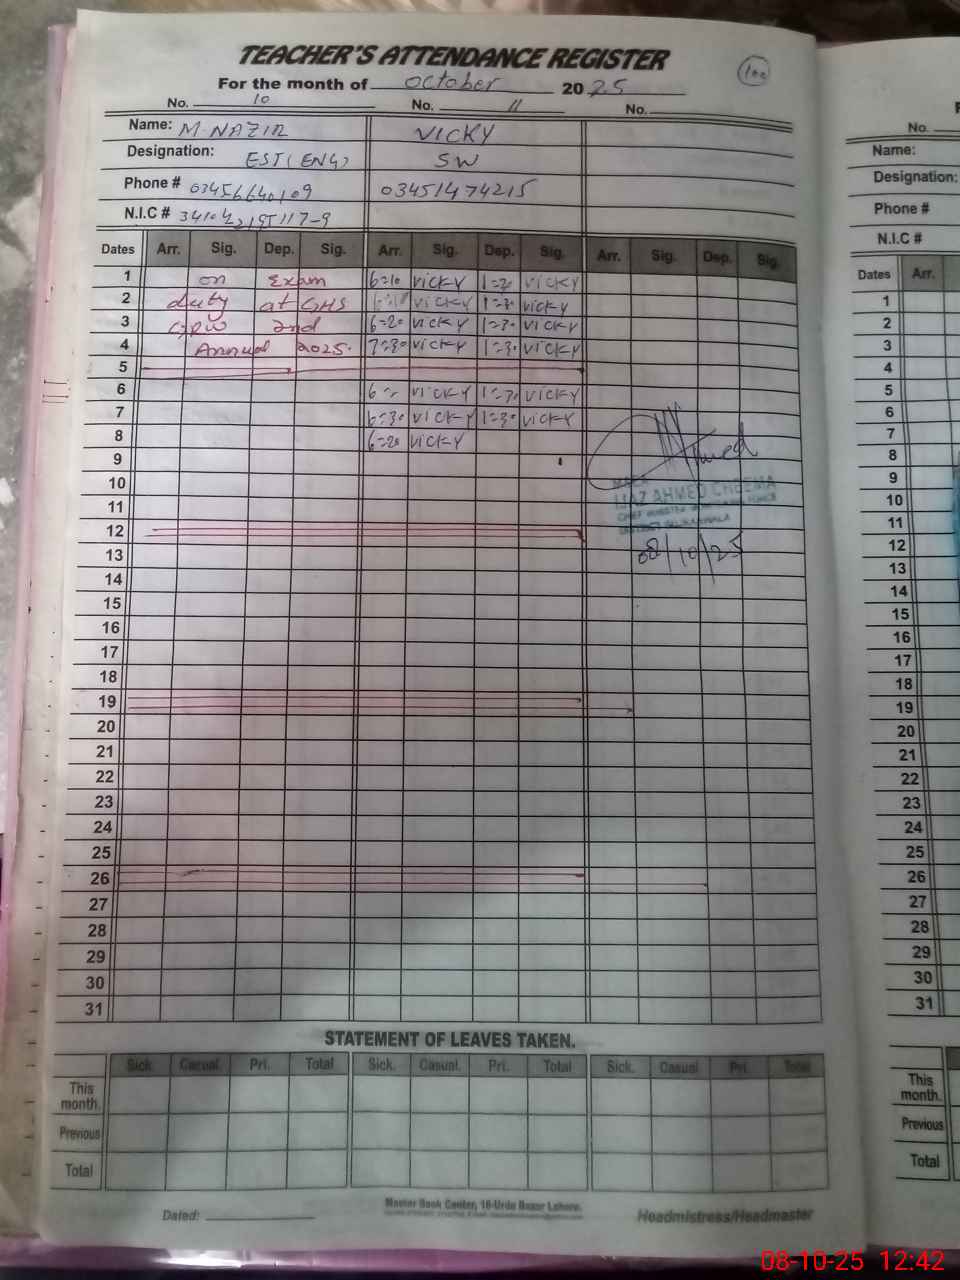 TEACHER'S ATTENDANCE REGISTER
100
For the month of October 2025
No. 10 No. 11 No.
Name: M. NAZIR VICKY
Designation: EST(ENG) SW
Phone # 03456640109 03451474215
N.I.C #
Dates Arr. Sig. Dep. Sig. Arr. Sig. Dep. Sig. Arr. Sig. Dep. Sig.
1 on Exam 6=10 VICKY VICKY
2 duty at GHS VICKY 1=30 VICKY
3 GRW 2nd 6=20 VICKY 1=30 VICKY
4 Annual 2025. 7=30 VICKY 1=30 VICKY
5
6 VICKY 1=30 VICKY
7 6=30 VICKY 1=30 VICKY
8 6=20 VICKY
9
10
11
12
13
14
15
16
17
18
19
20
21
22
23
24
25
26
27
28
29
30
31
Ahmed
IJAZ AHMED CHEEMA
08/10/25
STATEMENT OF LEAVES TAKEN.
Sick. Casual. Pri. Total Sick. Casual. Pri. Total Sick. Casual Pri. Total
This month.
Previous
Total
Master Book Center, 16-Urdu Bazar Lahore.
Dated: Headmistress/Headmaster
No.
Name:
Designation:
Phone #
N.I.C #
Dates Arr.
1
2
3
4
5
6
7
8
9
10
11
12
13
14
15
16
17
18
19
20
21
22
23
24
25
26
27
28
29
30
31
This month.
Previous
Total
08-10-25 12:42